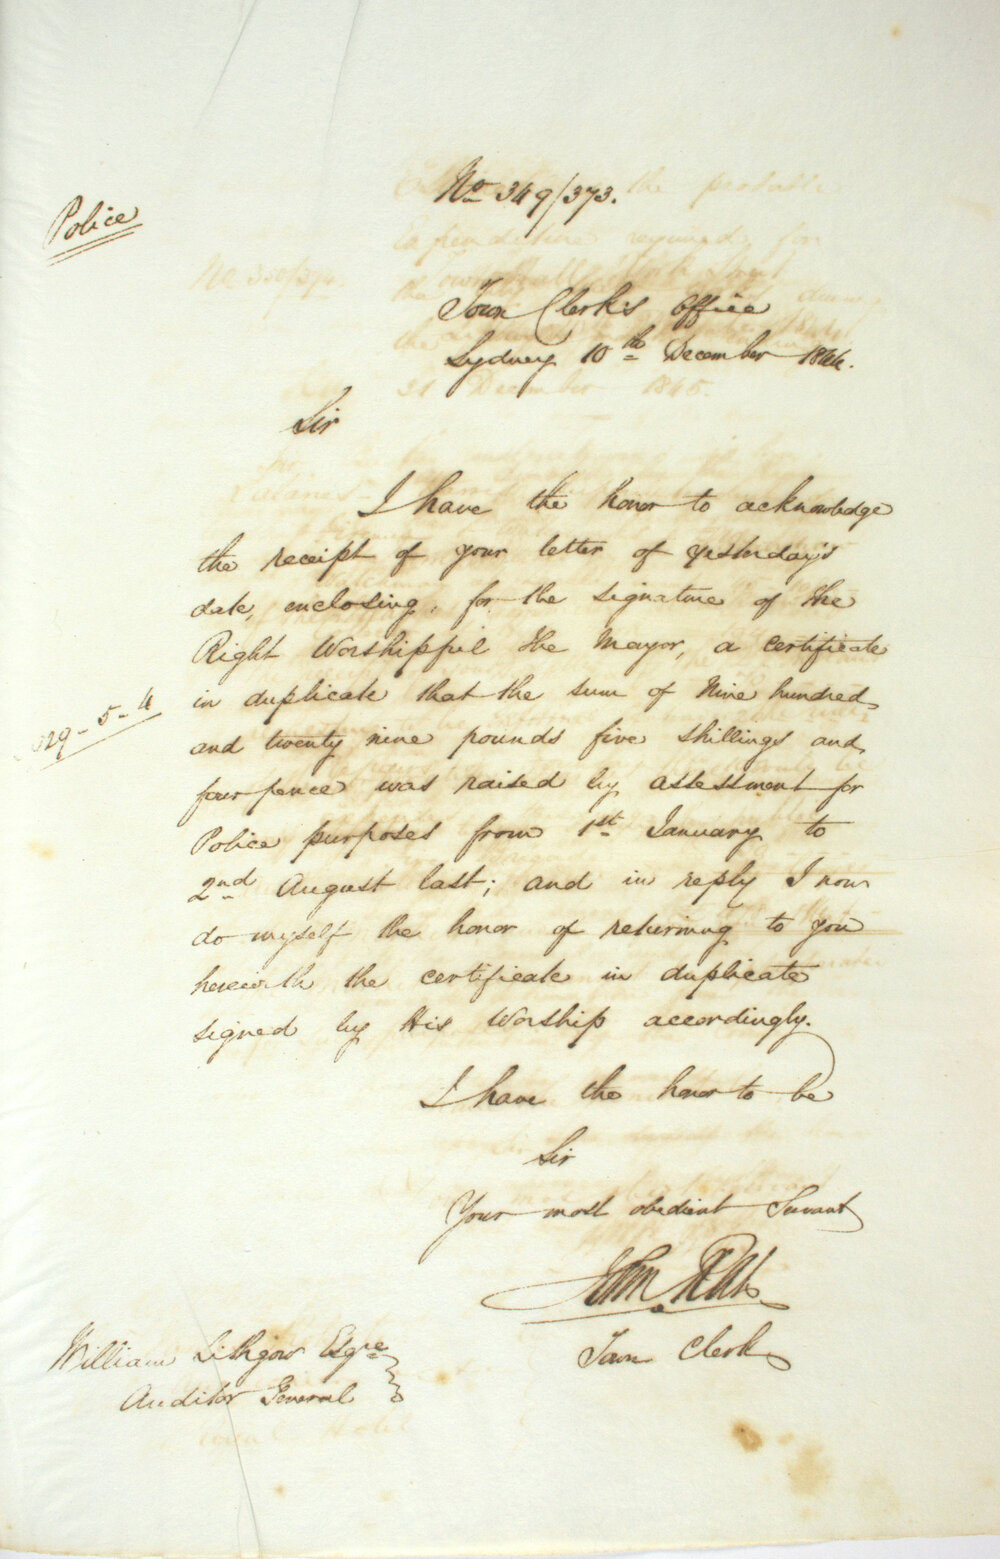 No 349/373.
Police
Town Clerk's Office
Sydney 10th December 1844.
Sir
I have the honor to acknowledge
the receipt of your letter of yesterday's
date, enclosing, for the signature of the
Right Worshipful the Mayor, a certificate
in duplicate that the sum of Nine hundred
929-5-4
and twenty nine pounds five shillings and
four pence was raised by assessment for
Police purposes from 1st January to
2nd August last; and in reply I now
do myself the honor of returning to you
herewith the certificate in duplicate
signed by His Worship accordingly.
I have the honor to be
Sir
Your most obedient Servant
John Rae
Town Clerk
William Lithgow Esqre
Auditor General